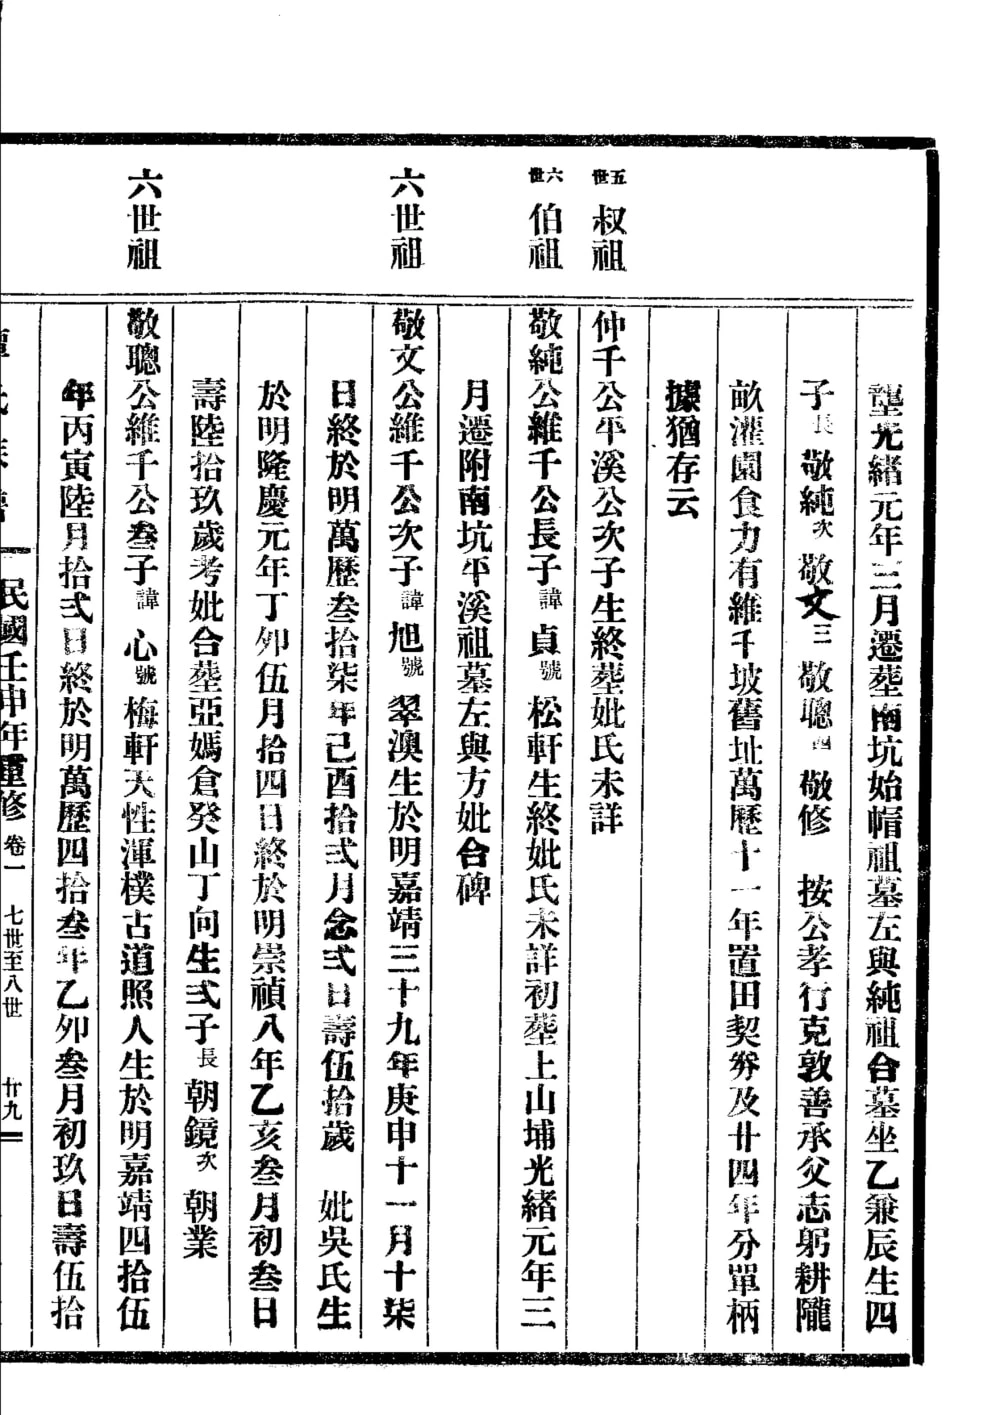 塟光緒元年三月遷塟南坑始帽祖墓左與純祖合墓坐乙兼辰生四
子長敬純次敬文三敬聰四敬修 按公孝行克敦善承父志躬耕隴
畝灌園食力有維千坡舊址萬歷十一年置田契券及廿四年分單柄
據猶存云
五世叔祖
仲千公平溪公次子生終塟妣氏未詳
六世伯祖
敬純公維千公長子諱貞號松軒生終妣氏未詳初塟上山埔光緒元年三
月遷附南坑平溪祖墓左與方妣合碑
六世祖
敬文公維千公次子諱旭號翠澳生於明嘉靖三十九年庚申十一月十柒
日終於明萬歷叁拾柒年己酉拾弍月念弍日壽伍拾歲 妣吳氏生
於明隆慶元年丁夘伍月拾四日終於明崇禎八年乙亥叁月初叁日
壽陸拾玖歲考妣合塟亞媽倉癸山丁向生弍子長朝鏡次朝業
六世祖
敬聰公維千公叁子諱心號梅軒天性渾樸古道照人生於明嘉靖四拾伍
年丙寅陸月拾弍日終於明萬歷四拾叁年乙夘叁月初玖日壽伍拾
民國壬申年重修 卷一 七世至八世 廿九